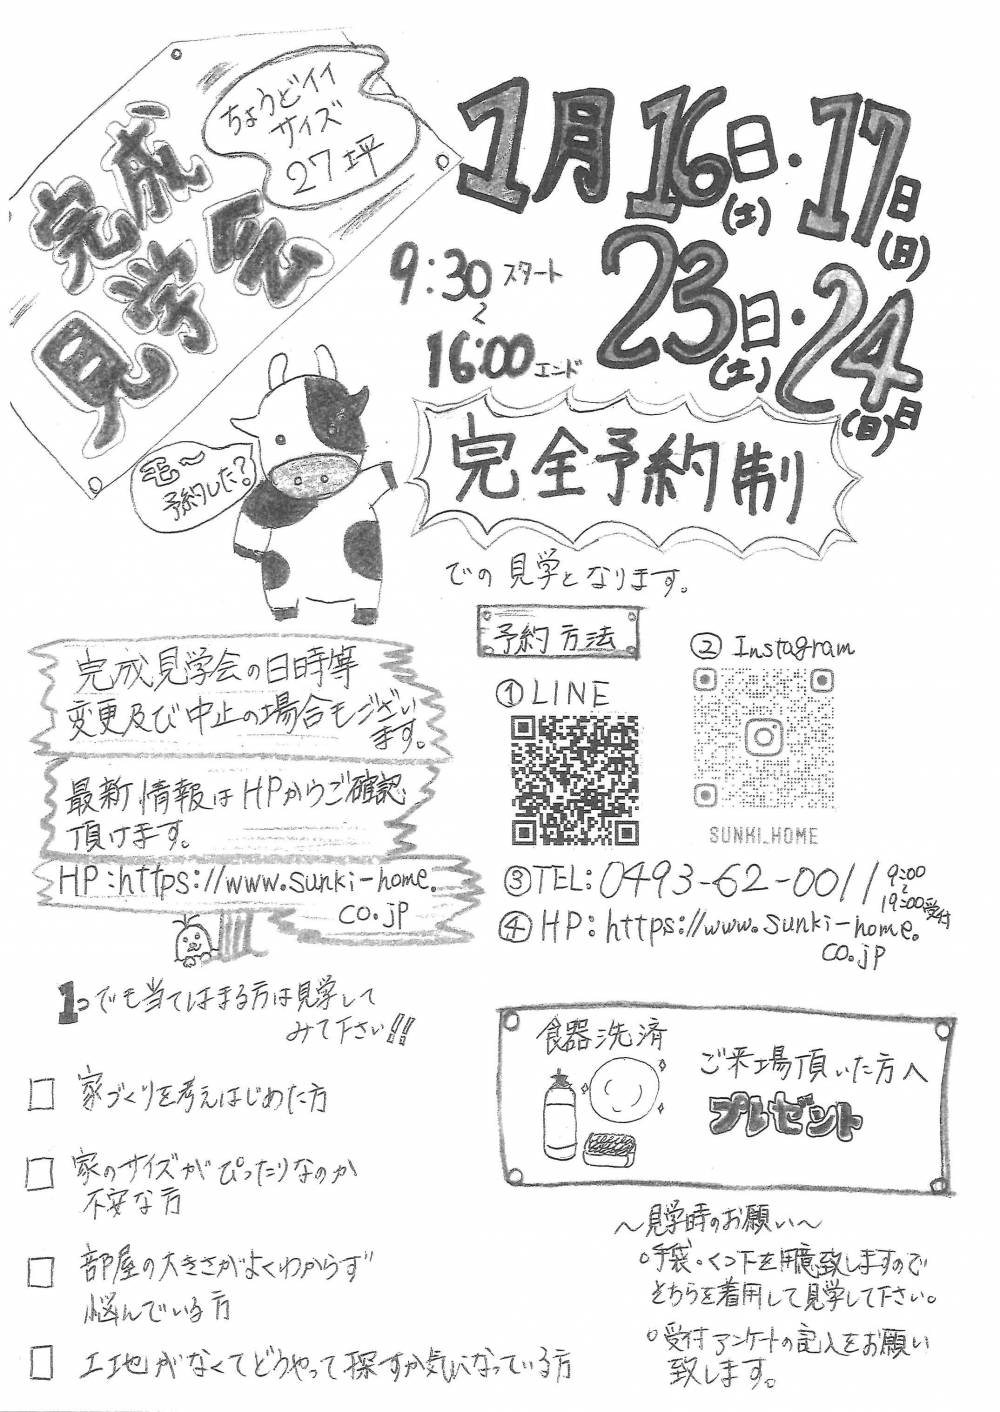 完成
見学会
ちょうどイイ
サイズ
27坪
1月16日(土)・17日(日)
23日(土)・24日(日)
9:30スタート
〜
16:00エンド
毛〜
予約した?
完全予約制
での見学となります。
予約方法
①LINE
②Instagram
SUNKI_HOME
③TEL:0493-62-0011 9:00〜19:00受付
④HP:https://www.sunki-home.
co.jp
完成見学会の日時等
変更及び中止の場合もござい
ます。
最新情報はHPからご確認
頂けます。
HP:https://www.sunki-home.
co.jp
1つでも当てはまる方は見学して
みて下さい!!
□ 家づくりを考えはじめた方
□ 家のサイズがぴったりなのか
不安な方
□ 部屋の大きさがよくわからず
悩んでいる方
□ 土地がなくてどうやって探すか気になっている方
食器洗済
ご来場頂いた方へ
プレゼント
〜見学時のお願い〜
○手袋・くつ下を用意致しますので
そちらを着用して見学して下さい。
○受付アンケートの記入をお願い
致します。